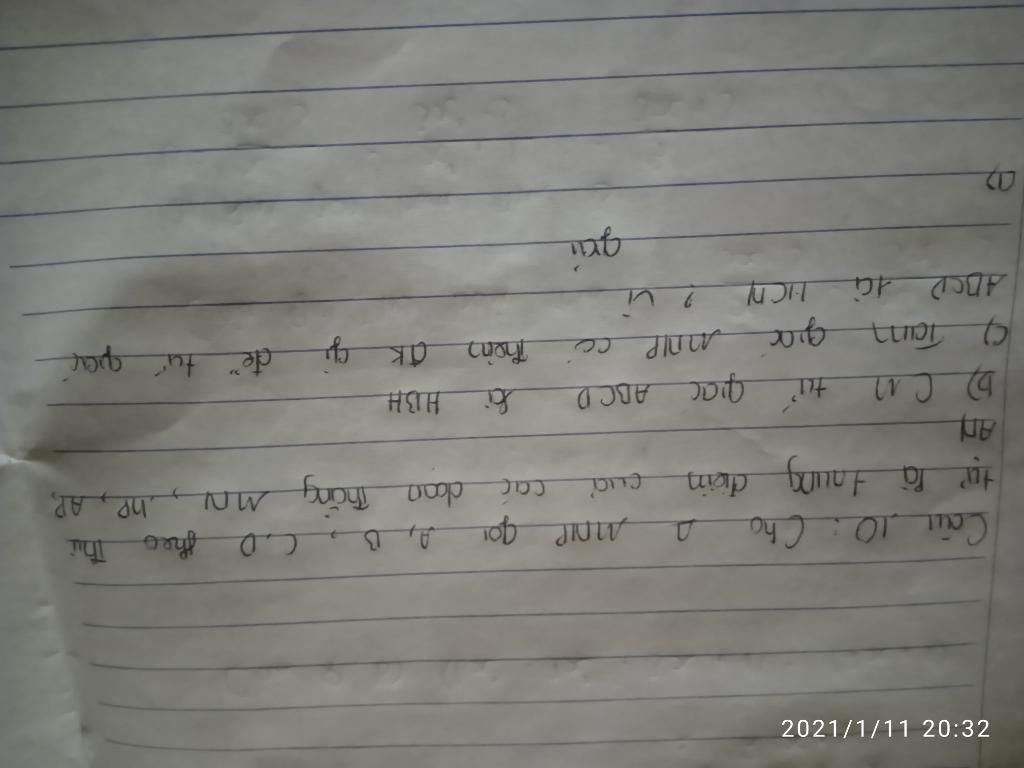 Câu 10: Cho Δ MNP gọi A, B, C, D theo thứ
tự là trung điểm của các đoạn thẳng MN, NP, AP,
AN
b) CM tứ giác ABCD là HBH
c) Tam giác MNP có thêm đk gì để tứ giác
ABCD là HCN ? Vì
giải
a)
2021/1/11 20:32